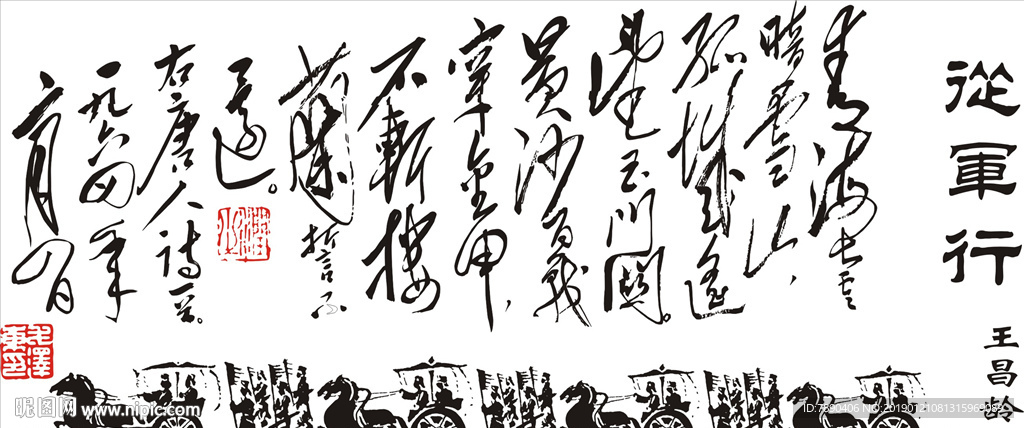 從軍行
王昌龄
青海长云
暗雪山,
孤城遥
望玉門関。
黄沙百戰
穿金甲,
不斬楼
蘭誓不
還。
右唐人诗一首
一九六四年
毛澤東印
昵图网
www.nipic.com